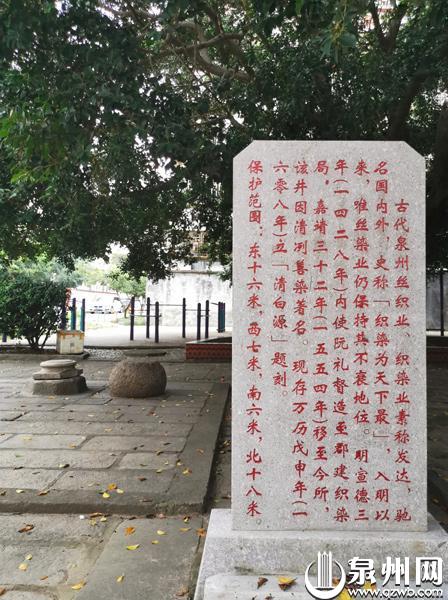 古代泉州丝织业、织染业素称发达，驰
名国内外，史称「织染为天下最」，入明以
来，唯丝染业仍保持其不衰地位。明宣德三
年(一四二八年)内使阮礼督造至郡建织染
局，嘉靖三十二年(一五五四年)移至今所，
该井因清冽善染著名。现存万历戊申年(一
六零八年)立「清白源」题刻。
保护范围：东十六米，西七米，南六米，北十八米。
泉州网
www.qzwb.com